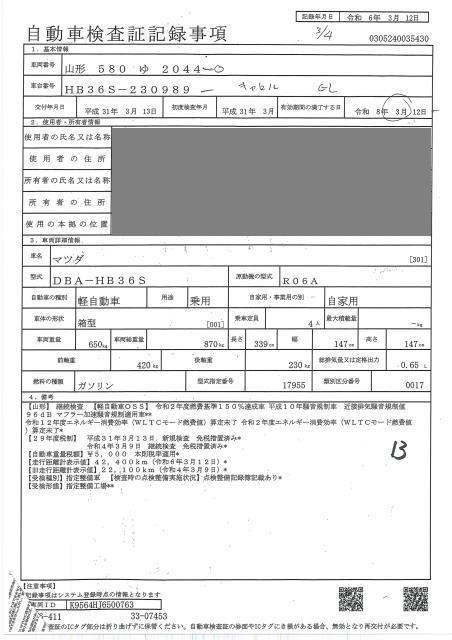 記録年月日 令和 6年 3月 12日
自動車検査証記録事項
3/4
0305240035430
1. 基本情報
車両番号 山形 580 ゆ 2044
車台番号 HB36S-230989 キャロル GL
交付年月日 平成 31年 3月 13日 初度検査年月 平成 31年 3月 有効期間の満了する日 令和 8年 3月 12日
2. 使用者・所有者情報
使用者の氏名又は名称
使用者の住所
所有者の氏名又は名称
所有者の住所
使用の本拠の位置
3. 車両詳細情報
車名 マツダ [301]
型式 DBA-HB36S 原動機の型式 R06A
自動車の種別 軽自動車 用途 乗用 自家用・事業用の別 自家用
車体の形状 箱型 [001] 乗車定員 4人 最大積載量 -kg
車両重量 650kg 車両総重量 870kg 長さ 339cm 幅 147cm 高さ 147cm
前軸重 420kg 後軸重 230kg 総排気量又は定格出力 0.65 L
燃料の種類 ガソリン 型式指定番号 17955 類別区分番号 0017
4. 備考
【山形】 継続検査 【軽自動車OSS】 令和2年度燃費基準150%達成車 平成10年騒音規制車 近接排気騒音規制値
96dB マフラー加速騒音規制適用車**
令和12年度エネルギー消費効率(WLTCモード燃費値)算定未了 令和2年度エネルギー消費効率(WLTCモード燃費値
)算定未了*
【29年度税制】 平成31年3月13日 新規検査 免税措置済み*
令和4年3月9日 継続検査 免税措置済み*
【自動車重量税額】¥5,000 本則税率適用*
【走行距離計表示値】42,400km(令和6年3月12日)*
【旧走行距離計表示値】22,100km(令和4年3月9日)*
【受検種別】指定整備車 【検査時の点検整備実施状況】点検整備記録簿記載あり*
【受検形態】指定整備工場**
13
【注意事項】
記録事項はシステム登録時点の情報となります
車両ID K9564HJ6500763
-411 33-07453
のICタグ部分は折り曲げずに保管ください。自動車検査証の券面やICタグにき損がある場合、無効となり再交付が必要です。